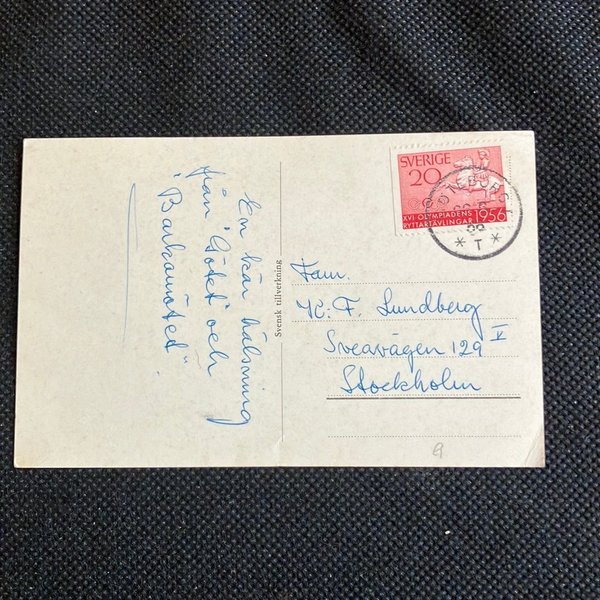 En kär hälsning
från "Götet" och
"Barkamötet"
Svensk tillverkning
SVERIGE
20
XVI OLYMPIADENS
RYTTARTÄVLINGAR
1956
GÖTEBORG
* T *
Fam.
K. F. Lundberg
Sveavägen 129 V
Stockholm